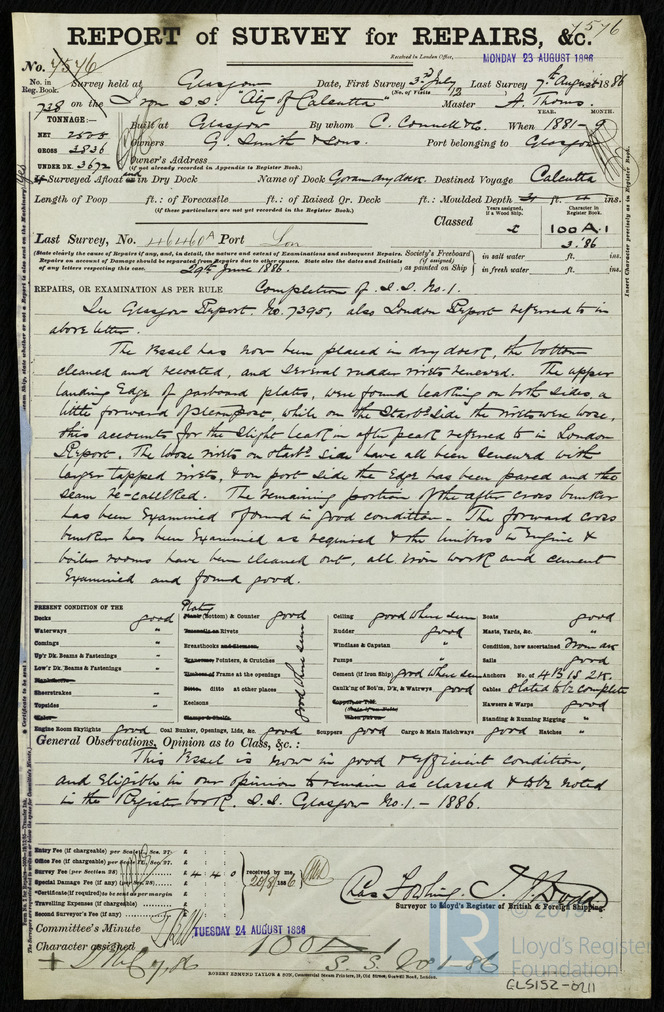 7576
REPORT of SURVEY for REPAIRS, &c.
Received in London Office, MONDAY 23 AUGUST 1886
No. 7576
No. in Reg. Book. Survey held at Glasgow Date, First Survey 3rd July Last Survey 7th August 1886
(No. of Visits 12)
728 on the Iron S.S. "City of Calcutta" Master A. Thoms
TONNAGE:— YEAR. MONTH.
Built at Glasgow By whom C. Connell & Co. When 1881-
NET
GROSS 3836 Owners G. Smith & Sons. Port belonging to Glasgow
UNDER DK. 3672 Owners' Address
(if not already recorded in Appendix to Register Book.)
If Surveyed Afloat and in Dry Dock Name of Dock Govan dry dock. Destined Voyage Calcutta
Length of Poop ft.: of Forecastle ft.: of Raised Qr. Deck ft.: Moulded Depth ft. ins.
(if these particulars are not yet recorded in the Register Book.)
Years assigned, if a Wood Ship. Character in Register Book.
Classed 100A.1
3.'86
Last Survey, No. 46460A Port Lon
(State clearly the cause of Repairs if any, and, in detail, the nature and extent of Examinations and subsequent Repairs.
Repairs on account of Damage should be separated from Repairs due to other causes. State also the dates and Initials
of any letters respecting this case. 29th June 1886.
Society's Freeboard (if assigned) as painted on Ship
in salt water ft. ins.
in fresh water ft. ins.
REPAIRS, OR EXAMINATION AS PER RULE Completion of S.S. No. 1.
See Glasgow Report No. 7395, also London Report referred to in
above letter.
The Vessel has now been placed in dry dock, the bottom
cleaned and recoated, and several rudder rivets renewed. The upper
landing Edge of garboard plates, were found leaking on both sides, a
little forward of sternpost, while on the Starbd side the rivets were loose,
this accounts for the slight leak in after peak referred to in London
Report. The loose rivets on starbd side have all been renewed with
larger tapped rivets, & on port side the Edge has been pared and the
seam re-caulked. The remaining portion of the after cross bunker
has been Examined & found in good condition. The forward cross
bunker has been Examined as required & the limbers in Engine &
boiler rooms have been cleaned out, all iron work and cement
Examined and found good.
PRESENT CONDITION OF THE
Decks good
Waterways "
Comings "
Up'r Dk. Beams & Fastenings "
Low'r Dk. Beams & Fastenings "
Sheerstrakes "
Topsides "
Plating (Bottom) & Counter good
Rivets
Breasthooks
Pointers, & Crutches
Frames at the openings
Ditto. ditto at other places
Keelsons
good where seen
Ceiling good where seen
Rudder good
Windlass & Capstan "
Pumps "
Cement (if Iron Ship) good where seen
Caulk'ng of Bot'm, D'k, & Watrwys good
Boats good
Masts, Yards, &c. "
Condition, how ascertained From dk
Sails good
Anchors No. of 4B 1S 2K.
Cables stated to be complete
Hawsers & Warps good
Standing & Running Rigging "
Engine Room Skylights good Coal Bunker, Openings, Lids, &c. good Scuppers good Cargo & Main Hatchways good Hatches "
General Observations, Opinion as to Class, &c.:
This Vessel is now in good & efficient condition,
and Eligible in our opinion to remain as classed & to be noted
in the Register book. S.S. Glasgow No. 1 - 1886.
Entry Fee (if chargeable) per Scale
Office Fee (if chargeable) per Scale
Survey Fee (per Section 28) £ 4 4 0
Special Damage Fee (if any)
*Certificate (if required) to be sent as per margin
Travelling Expenses (if chargeable)
Second Surveyor's Fee (if any)
received by me, 20/8/1886
Surveyor to Lloyd's Register of British & Foreign Shipping.
Committee's Minute TUESDAY 24 AUGUST 1886
Character assigned 100A1
S.S. No 1-86
ROBERT EDMUND TAYLOR & SON, Commercial Steam Printers, 19, Old Street, Goswell Road, London.
Insert Character precisely as in Register Book.
Lloyd's Register
Foundation
GLS152-0211